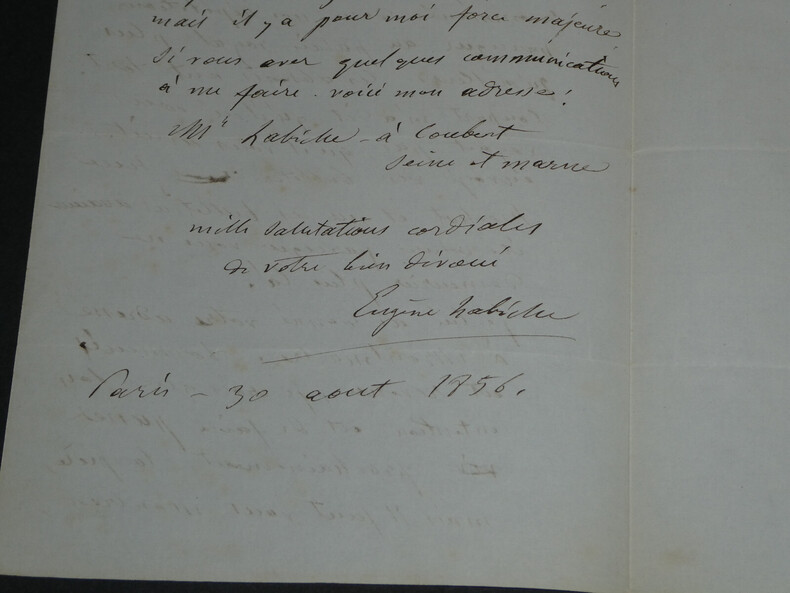 mais il y a pour moi force majeure
Si vous avez quelques communications
à me faire. voici mon adresse!
Mr Labiche - à Coubert
Seine et marne
mille salutations cordiales
de votre bien dévoué
Eugène Labiche
Paris - 30 aout 1856.